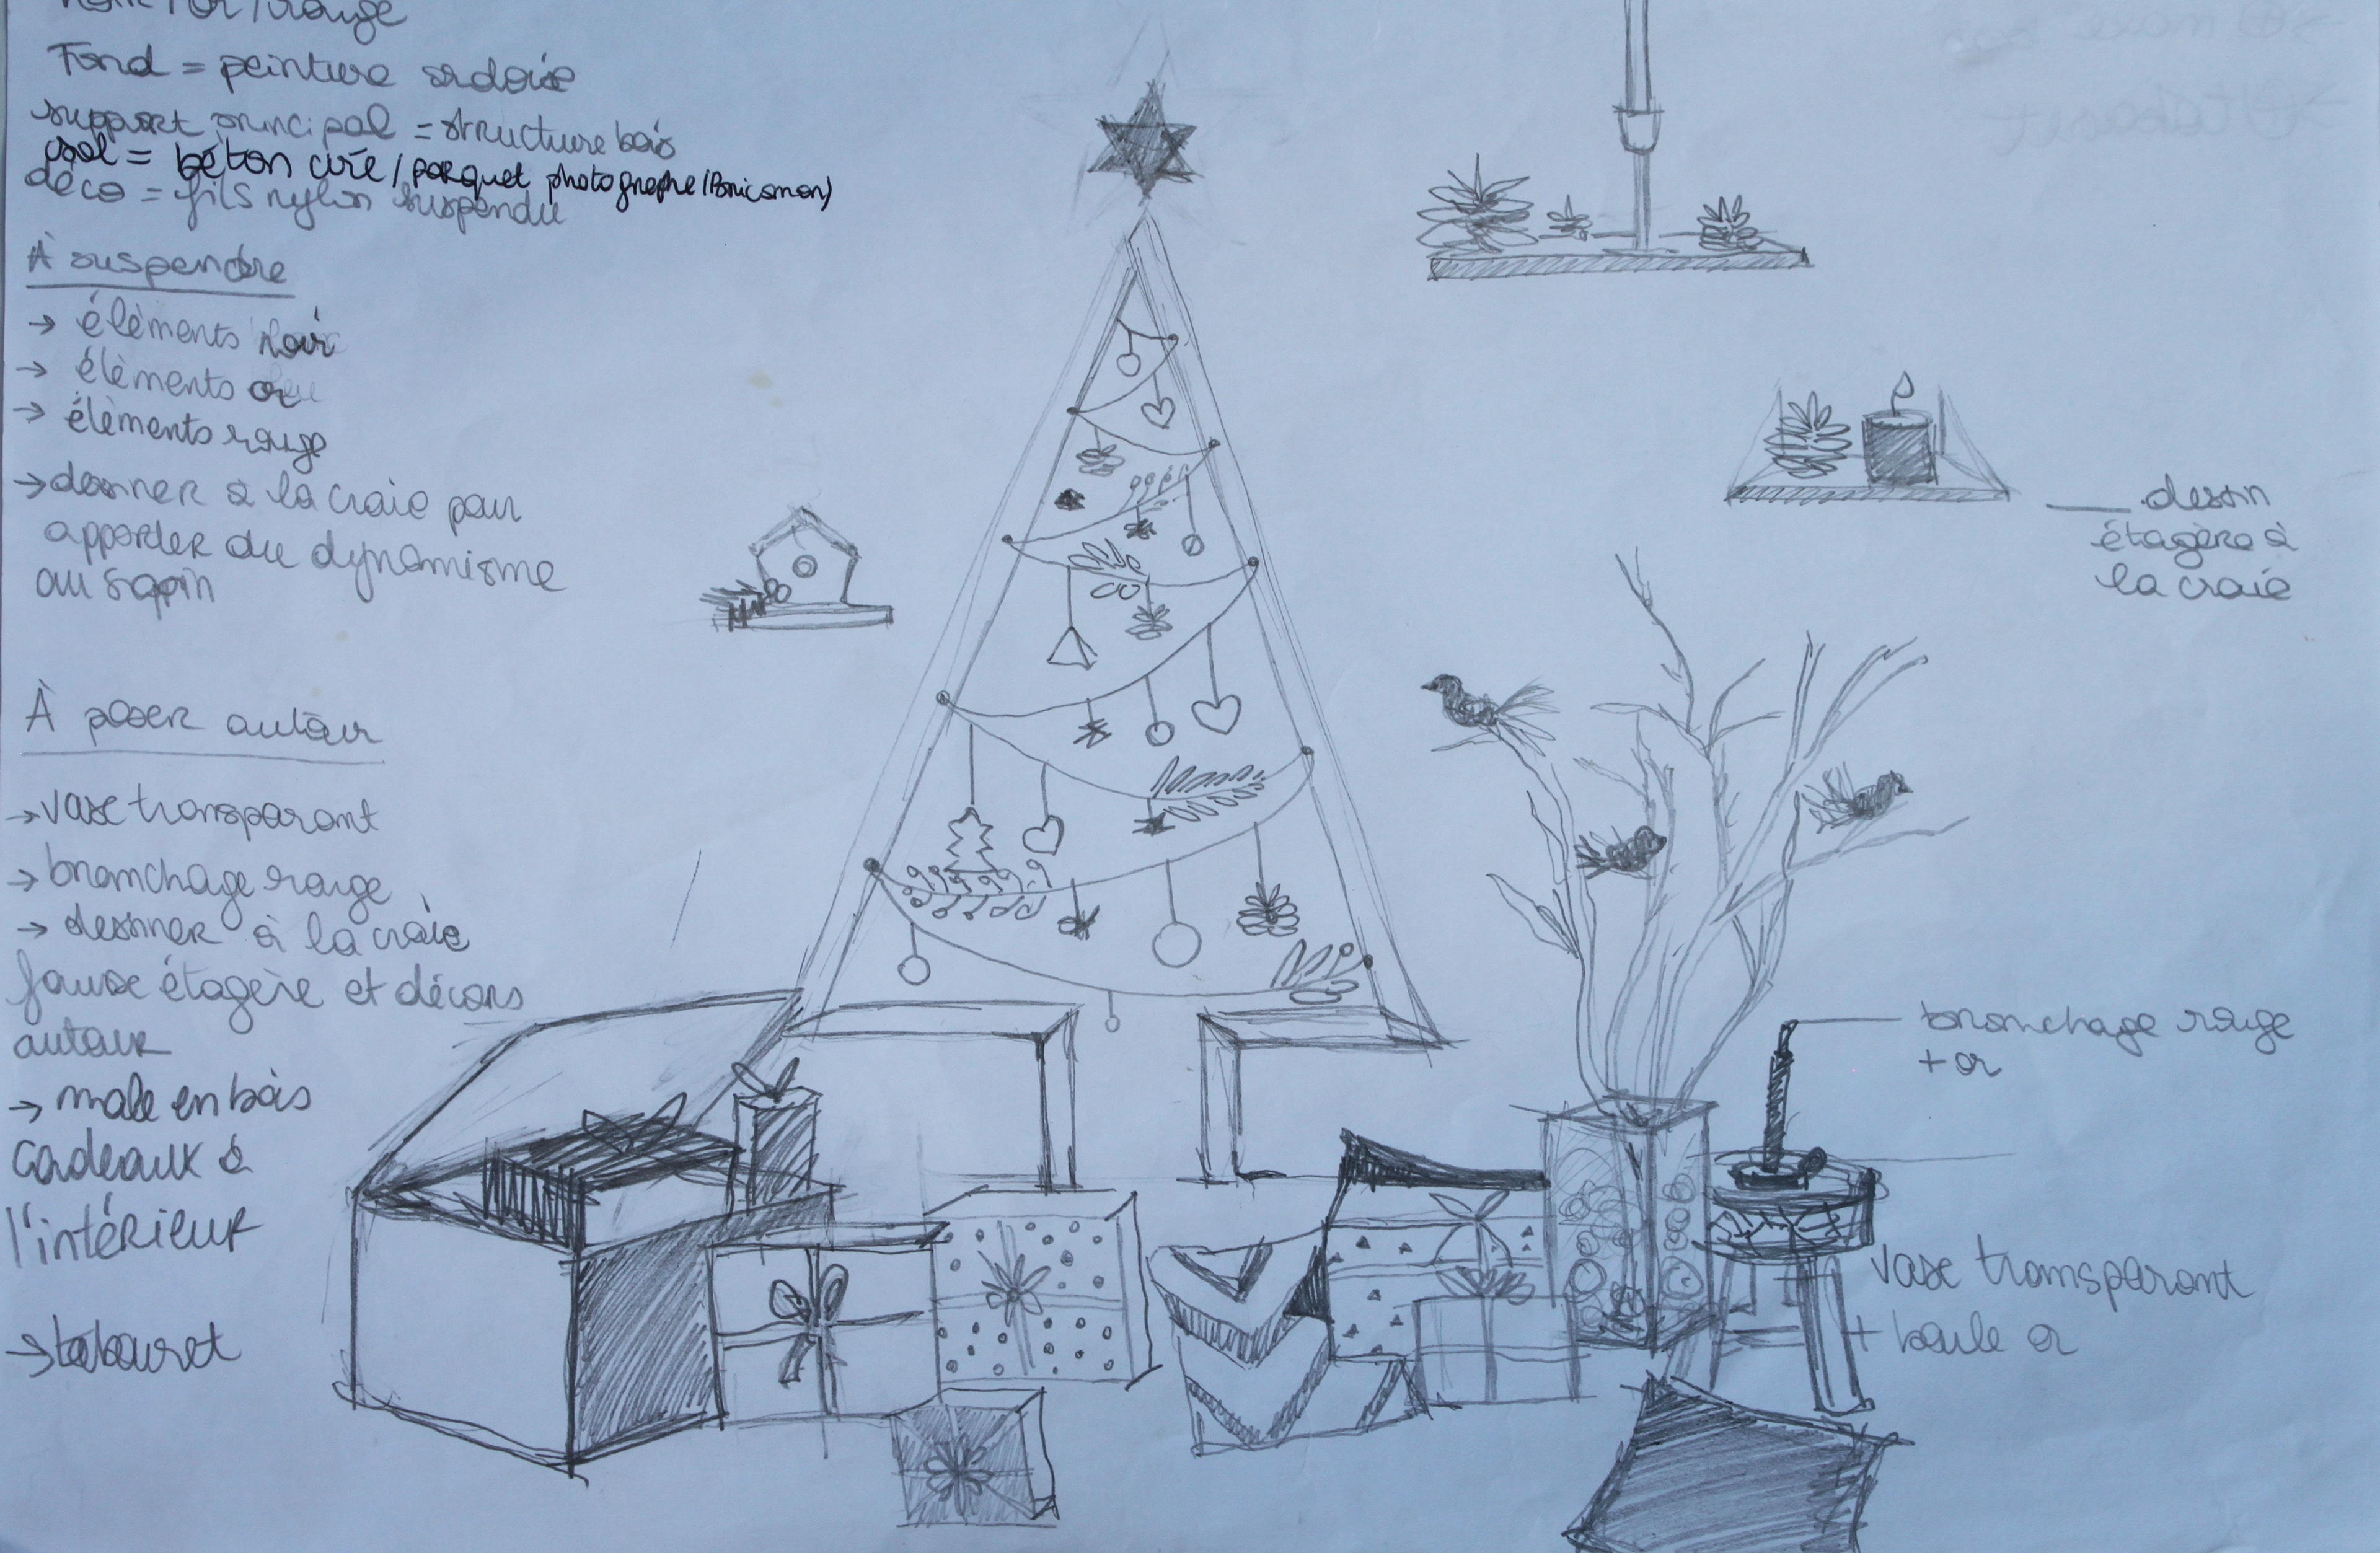 noir / or / rouge
Fond = peinture ardoise
support principal = structure bois
sol = béton ciré / parquet photographe (Bricoman)
déco = fils nylon suspendu
À suspendre
→ élèments noir
→ élèments or
→ élèments rouge
→ dessiner à la craie pour
apporter du dynamisme
au sapin
À poser autour
→ vase transparant
→ branchage rouge
→ dessiner à la craie
fausse étagère et décors
autour
→ male en bois
cadeaux à
l'intérieur
→ tabouret
dessin
étagère à
la craie
branchage rouge
+ or
vase transparant
+ boule or